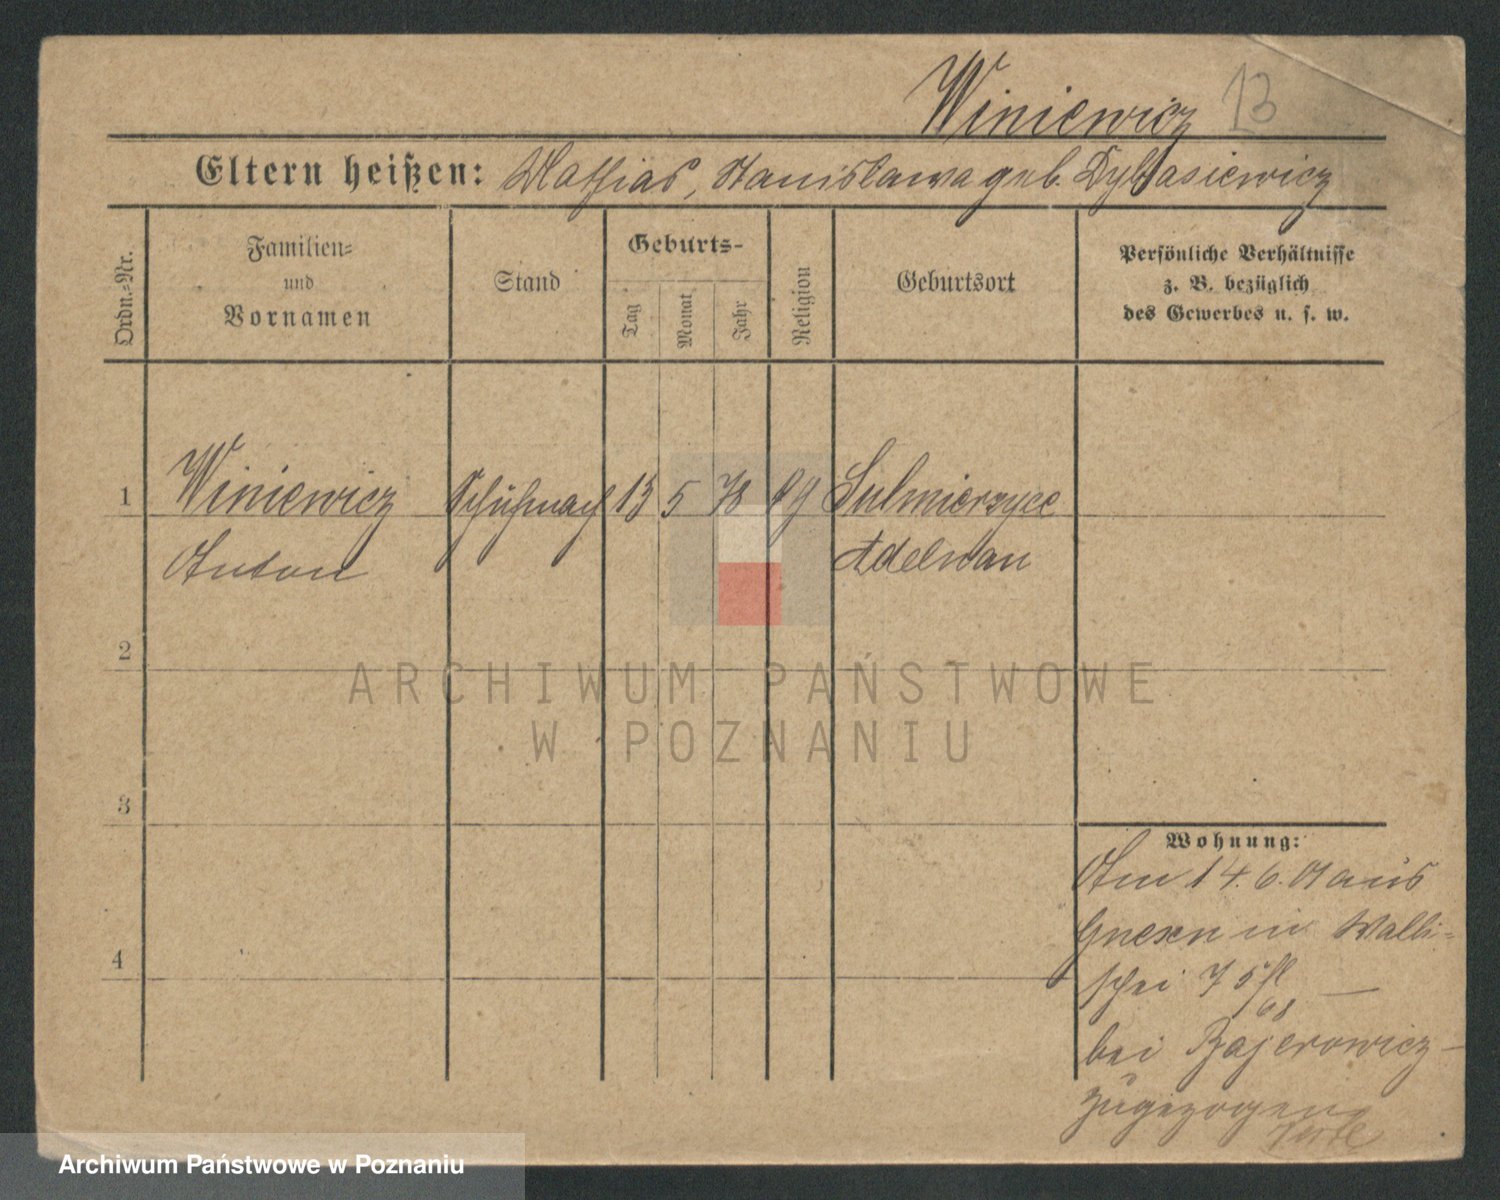 Winiewicz 13
Eltern heißen: Mathias, Stanislawa geb. Dybasiewicz
Ordn.-Nr.
Familien-
und
Vornamen
Stand
Geburts-
Tag
Monat
Jahr
Religion
Geburtsort
Persönliche Verhältnisse
z. B. bezüglich
des Gewerbes u. s. w.
1 Winiewicz Schuhmach 13 5 78 Sulmierzyce
Anton Adelnau
2
3
4
Wohnung:
Am 14. 6. aus
Gnesen in Walli-
schei 75
bei Bajerowicz
zugezogen
ARCHIWUM PAŃSTWOWE
W POZNANIU
Archiwum Państwowe w Poznaniu